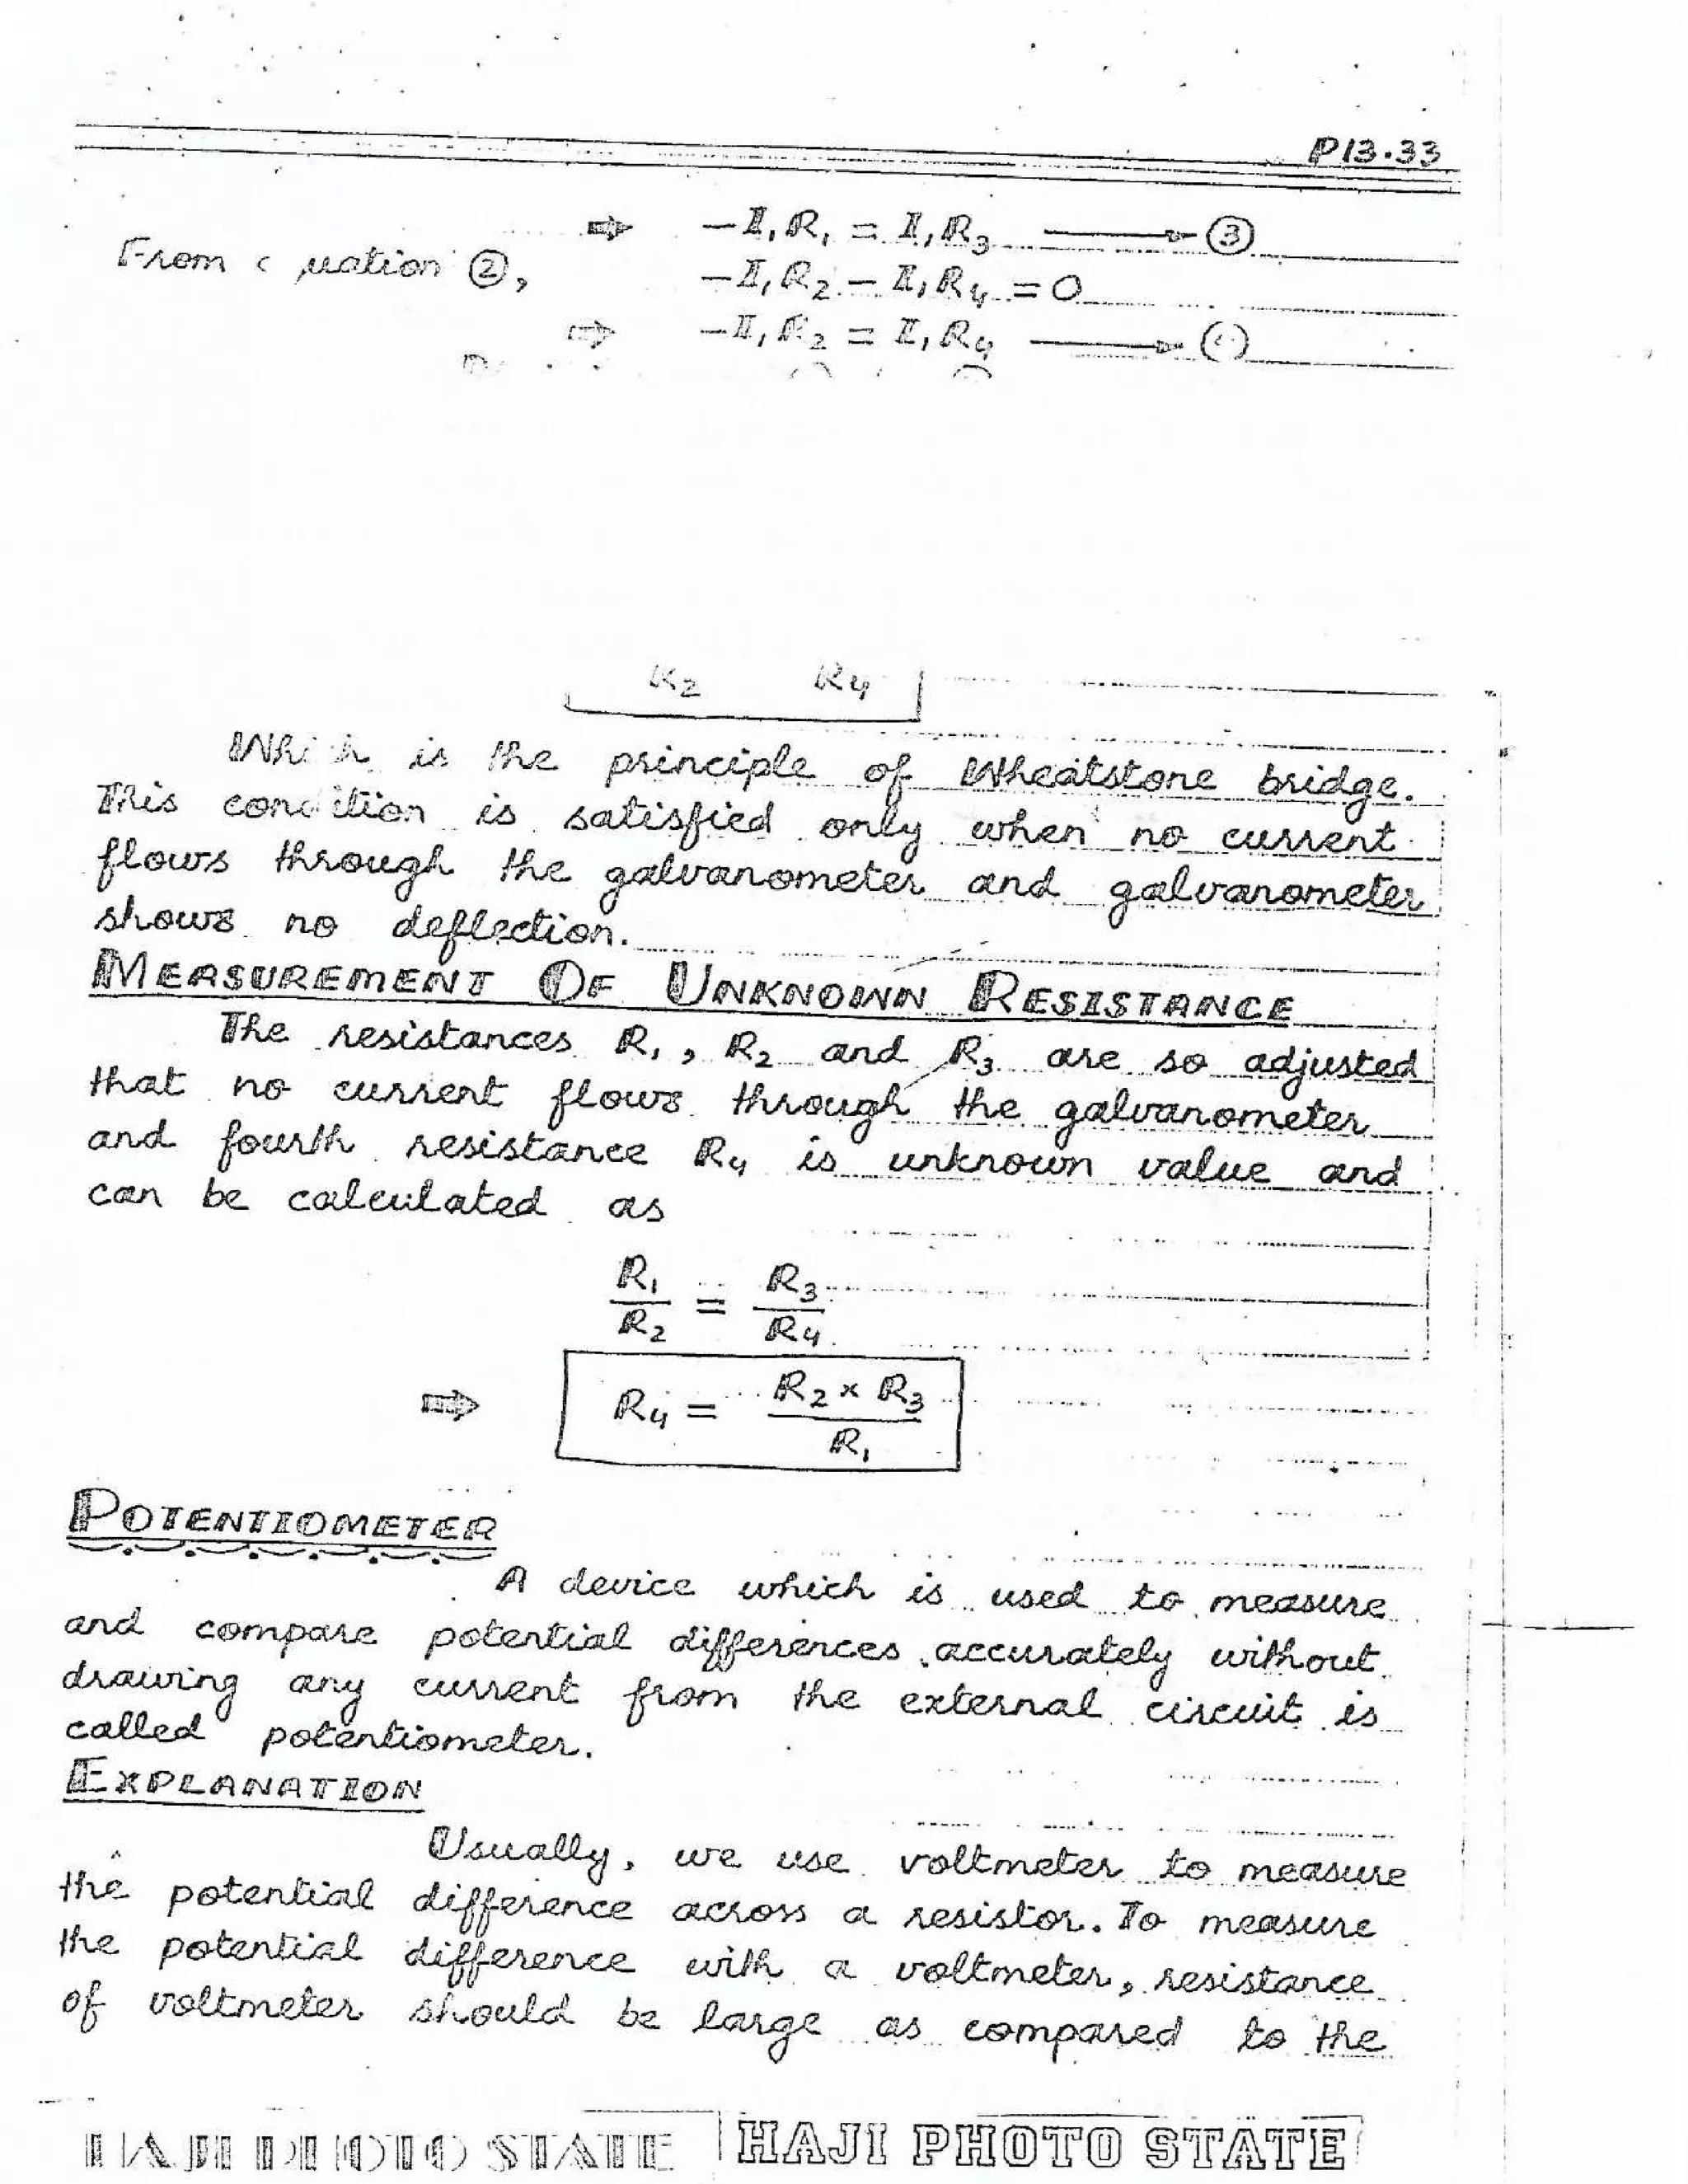 P13.33
⇒ –I₁R₁ = I₁R₃ ⟶ ③
From uation ②,
–I₁R₂ – I₁R₄ = 0
⇒ –I₁R₂ = I₁R₄ ⟶
R₂ R₄
Which is the principle of Wheatstone bridge.
This condition is satisfied only when no current
flows through the galvanometer and galvanometer
shows no deflection.
MEASUREMENT OF UNKNOWN RESISTANCE
The resistances R₁, R₂ and R₃ are so adjusted
that no current flows through the galvanometer
and fourth resistance R₄ is unknown value and
can be calculated as
R₁/R₂ = R₃/R₄
⇒ R₄ = R₂ × R₃/R₁
POTENTIOMETER
A device which is used to measure
and compare potential differences accurately without
drawing any current from the external circuit is
called potentiometer.
EXPLANATION
Usually, we use voltmeter to measure
the potential difference across a resistor. To measure
the potential difference with a voltmeter, resistance
of voltmeter should be large as compared to the
HAJI PHOTO STATE HAJI PHOTO STATE